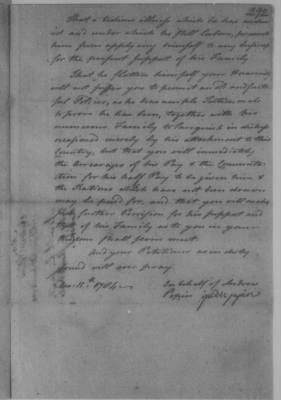 292
That a tedious illness which he has under
and under which he still labors, prevents
him from applying himself to any business
for the present support of his Family
That he flatters himself your Honours
will not suffer you to permit an old and faith
ful Officer, as he has ample Testimonials
to prove he has been, together with his
numerous Family to languish in distress
occasioned merely by his attachment to this
Country, but that you will immediately
the Arrearages of his Pay & the Commuta
tion for his half Pay to be given him &
the Rations which have not been drawn
may be paid for, and that you will make
such further Provision for his support and
that of his Family as to you in your
Wisdom shall seem meet.
And your Petitioner as in duty
bound will ever pray.
Dec. 11th 1784 In behalf of Andrew